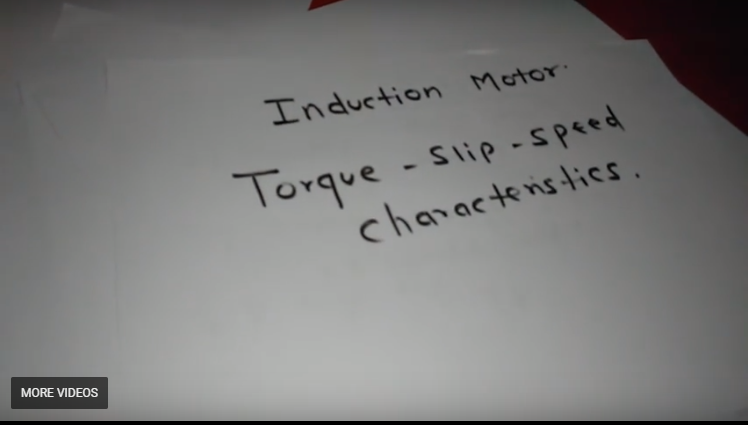 Induction Motor.
Torque - Slip - speed
characteristics.
MORE VIDEOS